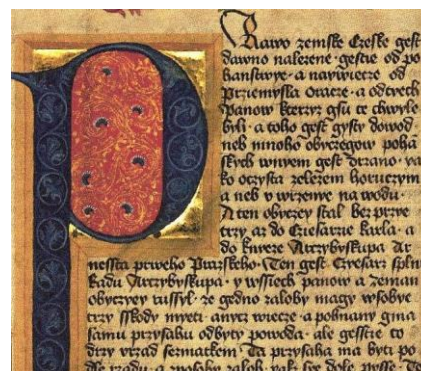 Prawo zemske Czeske gest
dawno nalezene· gestie od po
hanstwye· a naywiecze od
Prziemysla Oracze· a od tech
Panow kterzyz gsu te chwyle
byli· a toho gest gysty dowod·
neb mnoho obyczegow poha
skych wnyem gest drzano· ya
ko oczysta zelezem horuczym
a neb v wirzenye na wodu·
A ten obyczey stal bez przie
trzy az do Cziesarzie Karla· a
do knieze Arczybyskupa Ar
nessta prweho Prazskeho· Ten gest Czyesarz
Radu Arczybyskupa· y wssiech panow a Zeman
obyczyey russyl· ze gedno zaloby magy wsobye
trzy sskody myeti· anyz wiecze· a pohnany gma
samu przysahu odbyty powoda· ale gesstie to
drzy vrzad· Ta przysaha ma byti po